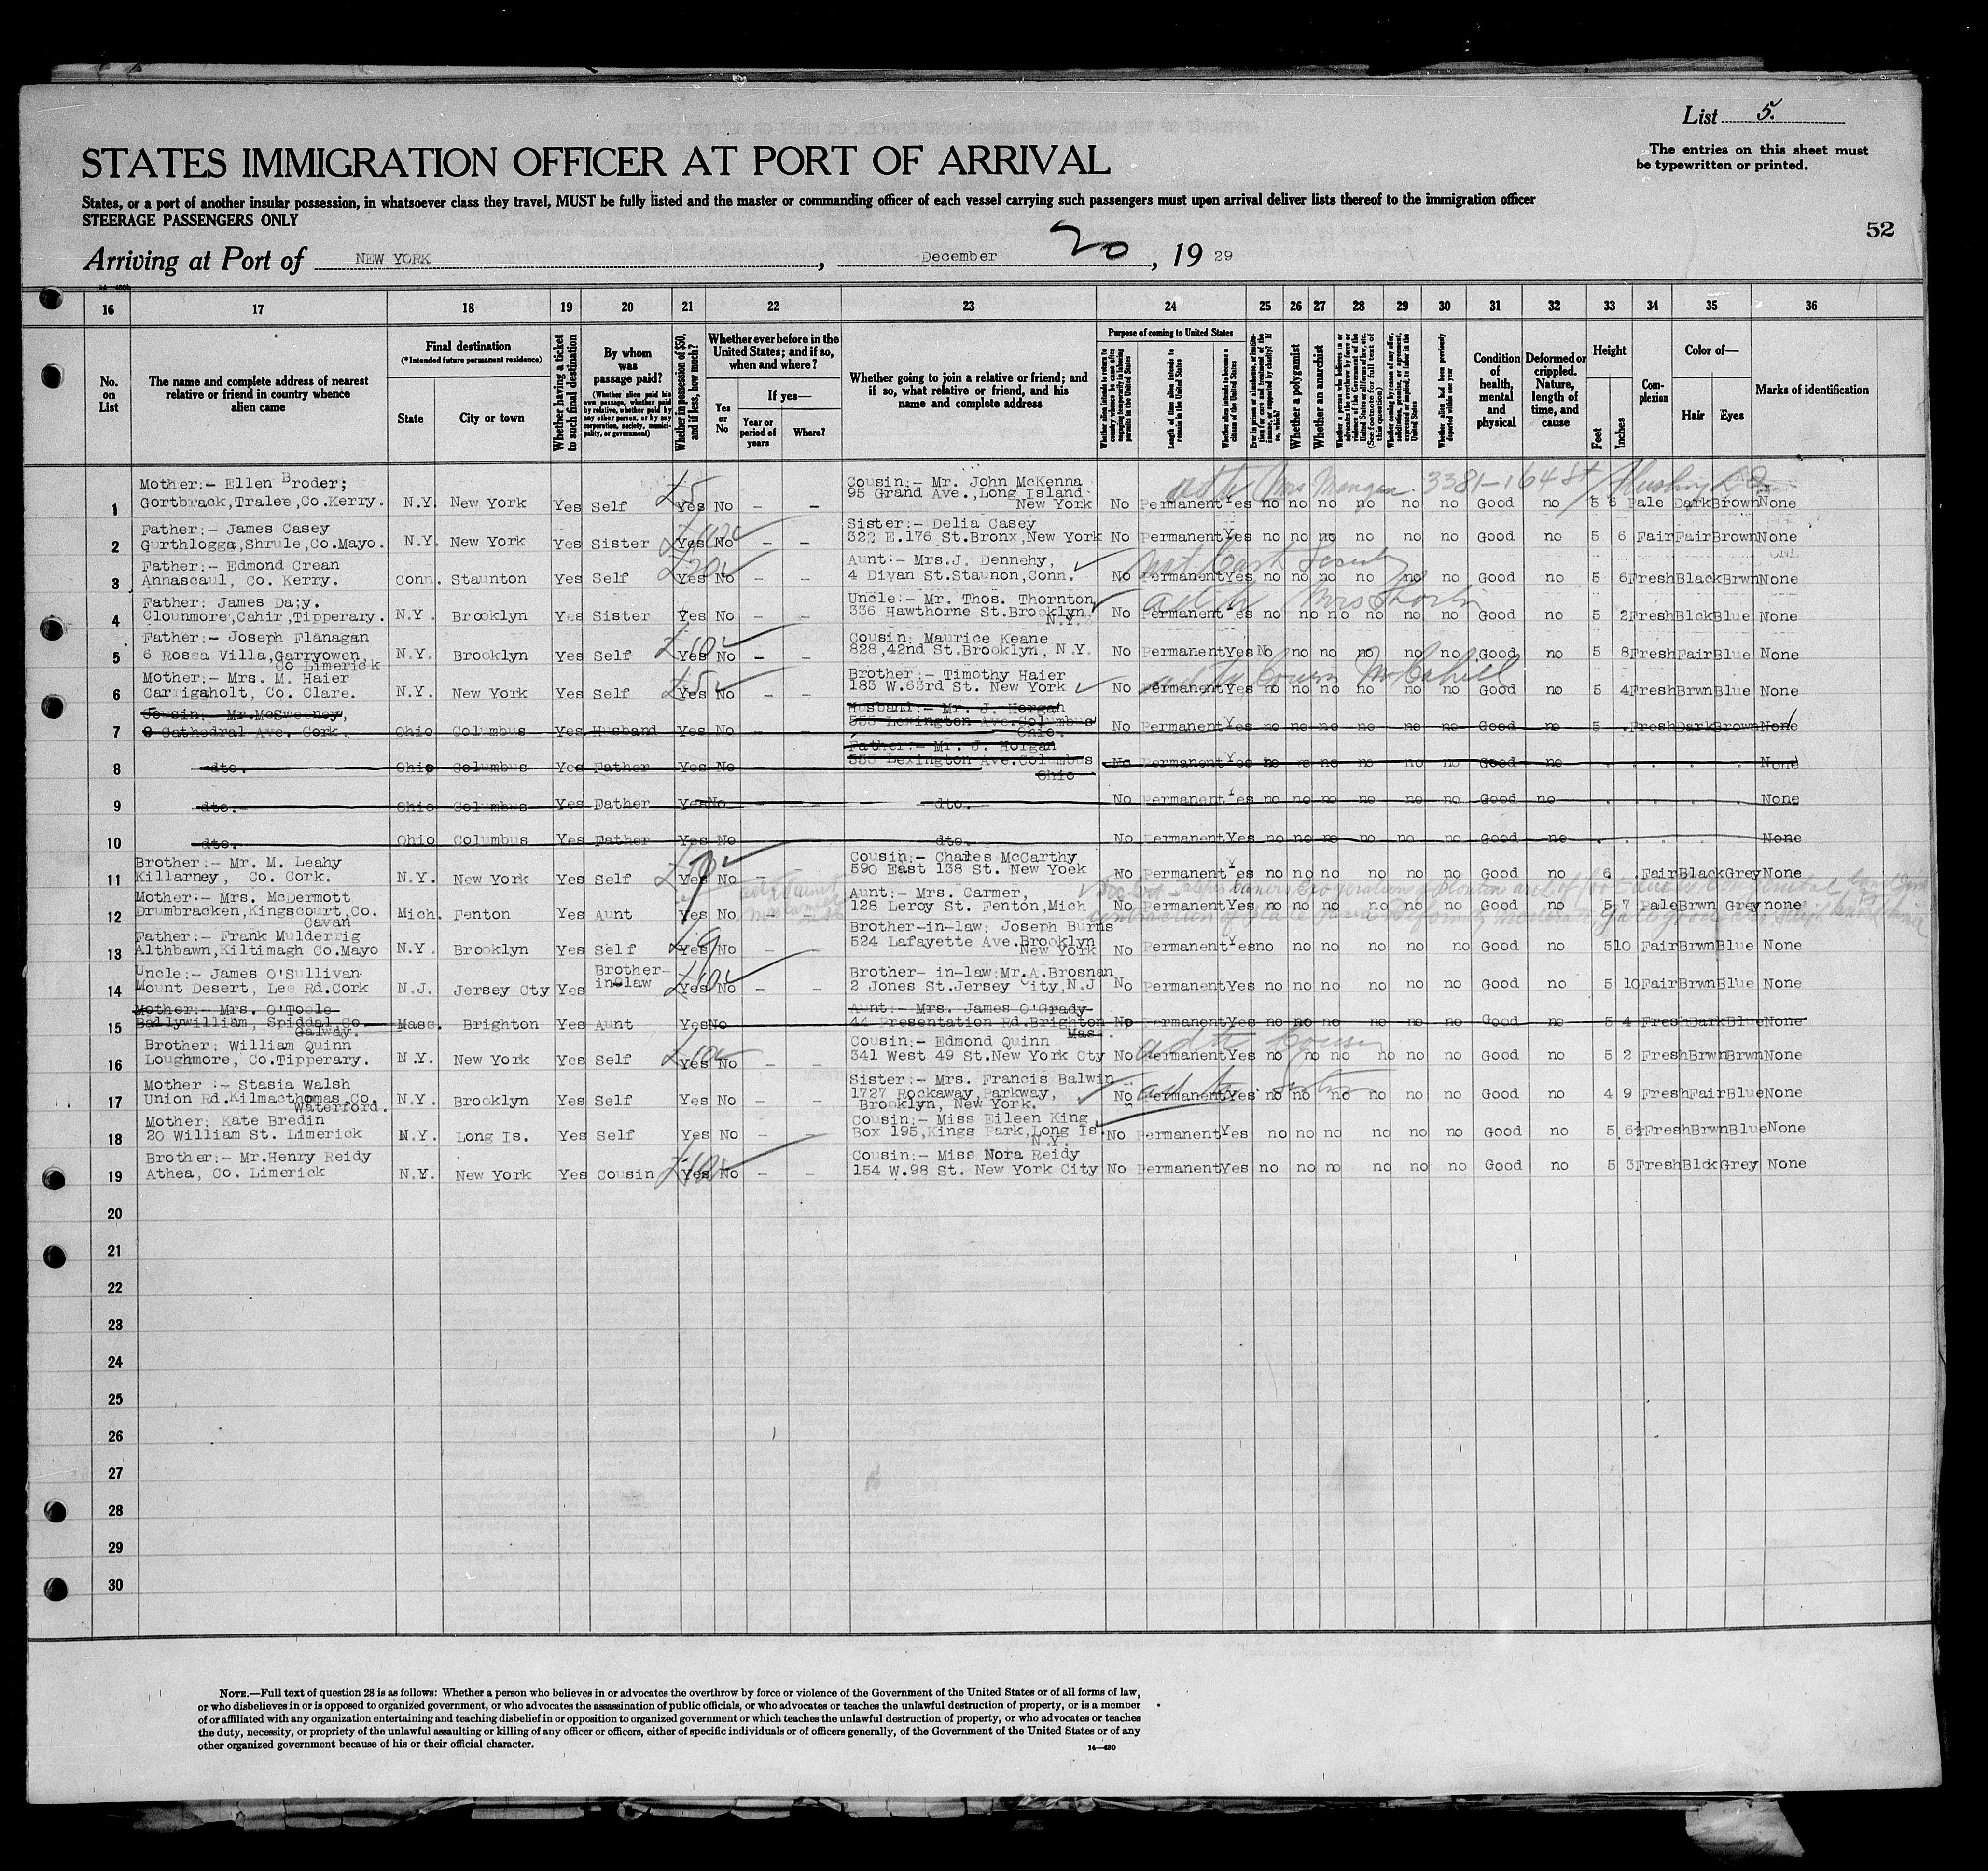 List 5.
The entries on this sheet must
be typewritten or printed.
STATES IMMIGRATION OFFICER AT PORT OF ARRIVAL
States, or a port of another insular possession, in whatsoever class they travel, MUST be fully listed and the master or commanding officer of each vessel carrying such passengers must upon arrival deliver lists thereof to the immigration officer
STEERAGE PASSENGERS ONLY
52
Arriving at Port of NEW YORK, December 20, 1929
16 17 18 19 20 21 22 23 24 25 26 27 28 29 30 31 32 33 34 35 36
No. on List
The name and complete address of nearest relative or friend in country whence alien came
Final destination
(*Intended future permanent residence)
State
City or town
Whether having a ticket to such final destination
By whom was passage paid?
(Whether alien paid his own passage, whether paid by relative, whether paid by any other person, or by any corporation, society, municipality, or government)
Whether in possession of $50, and if less, how much?
Whether ever before in the United States; and if so, when and where?
Yes or No
If yes—
Year or period of years
Where?
Whether going to join a relative or friend; and if so, what relative or friend, and his name and complete address
Purpose of coming to United States
Length of time alien intends to remain in the United States
Whether alien intends to become a citizen of the United States
Whether a polygamist
Whether an anarchist
Condition of health, mental and physical
Deformed or crippled. Nature, length of time, and cause
Height
Feet
Inches
Complexion
Color of—
Hair
Eyes
Marks of identification
Mother:- Ellen Broder;
Cousin:- Mr. John McKenna
1 Gortbrack,Tralee,Co.Kerry. N.Y. New York Yes Self £5 Yes No - - 95 Grand Ave.,Long Island New York No Permanent Yes no no no no no no Good no 5 6 Pale Dark Brown None
3381-164 St Flushing
Father:- James Casey
Sister:- Delia Casey
2 Gurthlogga,Shrule,Co.Mayo. N.Y. New York Yes Sister Yes No - - 322 E.176 St.Bronx,New York No Permanent Yes no no no no no no Good no 5 6 Fair Fair Brown None
Father:- Edmond Crean
Aunt:- Mrs.J. Dennehy,
3 Annascaul, Co. Kerry. Conn. Staunton Yes Self £20 Yes No - - 4 Divan St.Staunon,Conn. No Permanent Yes no no no no no no Good no 5 6 Fresh Black Brwn None
Father: James Da;y.
Uncle:- Mr. Thos. Thornton
4 Clounmore,Cahir,Tipperary. N.Y. Brooklyn Yes Sister Yes No - - 336 Hawthorne St.Brooklyn, N.Y. No Permanent Yes no no no no no no Good no 5 2 Fresh Blck Blue None
Father:- Joseph Flanagan
Cousin: Maurice Keane
5 6 Rossa Villa,Garryowen, Co Limerick N.Y. Brooklyn Yes Self £10 Yes No - - 828,42nd St.Brooklyn, N.Y. No Permanent Yes No no no no no no Good no 5 8 Fresh Fair Blue None
Mother:- Mrs. M. Haier
Brother:- Timothy Haier
6 Carrigaholt, Co. Clare. N.Y. New York Yes Self £5 Yes No - - 183 W.63rd St. New York No Permanent Yes no no no no no no Good no 5 4 Fresh Brwn Blue None
Cousin:- Mr.McSweeney,
Husband:- Mr. J. Horgan
7 8 Cathedral Ave. Cork. Ohio Columbus Yes Husband Yes No 555 Lexington Ave.Columbus Ohio. No Permanent Yes no no no no no no Good no 5 . Fresh Dark Brown None
Father:- Mr. J. Horgan
8 dto. Ohio Columbus Yes Father Yes No 555 Lexington Ave.Columbus Ohio No Permanent Yes no no no no no no Good no None
9 dto. Ohio Columbus Yes Father Yes No dto. No Permanent Yes no no no no no no Good no None
10 dto. Ohio Columbus Yes Father Yes No dto. No Permanent Yes no no no no no no Good no None
Brother:- Mr. M. Leahy
Cousin:- Charles McCarthy
11 Killarney, Co. Cork. N.Y. New York Yes Self Yes No - - 590 East 138 St. New Yoek No Permanent Yes no no no no no no Good no 6 . Fair Black Grey None
Mother:- Mrs. McDermott
Aunt:- Mrs. Carmer,
12 Drumbracken,Kingscourt,Co. Cavan Mich. Fenton Yes Aunt Yes No 128 Leroy St. Fenton,Mich No Permanent Yes no no no no no no Good no 5 7 Pale Brwn Grey none
Father:- Frank Mulderrig
Brother-in-law: Joseph Burns
13 Althbawn,Kiltimagh Co.Mayo N.Y. Brooklyn Yes Self £9 Yes No - - 524 Lafayette Ave.Brooklyn New York No Permanent Yes no no no no no no Good no 5 10 Fair Brwn Blue None
Uncle:- James O'Sullivan
Brother- in-law:Mr.A.Brosnan
14 Mount Desert, Lee Rd.Cork N.J. Jersey Cty Yes Brother-in-law £10 Yes No - - 2 Jones St.Jersey City,N.J No Permanent Yes no no no no no no Good no 5 10 Fair Brwn Blue None
Mother:- Mrs. O'Toole
Aunt:- Mrs. James O'Grady
15 Ballywilliam, Spiddal Co Galway. Mass. Brighton Yes Aunt Yes No 44 Presentation Rd.Brighton Mass. No Permanent Yes no no no no no no Good no 5 4 Fresh Dark Blue None
Brother: William Quinn
Cousin:- Edmond Quinn
16 Loughmore, Co.Tipperary. N.Y. New York Yes Self £10 Yes No - - 341 West 49 St.New York Cty No Permanent Yes no no no no no no Good no 5 2 Fresh Brwn Brwn None
adt Cousin
Mother :- Stasia Walsh
Sister:- Mrs. Francis Balwin
17 Union Rd.Kilmacthomas Co. Waterford. N.Y. Brooklyn Yes Self Yes No - - 1727 Rockaway Parkway, Brooklyn, New York. No Permanent Yes no no no no no no Good no 4 9 Fresh Fair Blue None
Mother: Kate Bredin
Cousin:- Miss Eileen King
18 20 William St. Limerick N.Y. Long Is. Yes Self Yes No - - Box 195,Kings Park,Long Is. N.Y. No Permanent Yes no no no no no no Good no 5 6½ Fresh Brwn Blue None
Brother:- Mr.Henry Reidy
Cousin:- Miss Nora Reidy
19 Athea, Co. Limerick N.Y. New York Yes Cousin £10 Yes No - - 154 W.98 St. New York City No Permanent Yes no no no no no no Good no 5 3 Fresh Blck Grey None
20
21
22
23
24
25
26
27
28
29
30
NOTE.—Full text of question 28 is as follows: Whether a person who believes in or advocates the overthrow by force or violence of the Government of the United States or of all forms of law,
or who disbelieves in or is opposed to organized government, or who advocates the assassination of public officials, or who advocates or teaches the unlawful destruction of property, or is a member
of or affiliated with any organization entertaining and teaching disbelief in or opposition to organized government or which teaches the unlawful destruction of property, or who advocates or teaches
the duty, necessity, or propriety of the unlawful assaulting or killing of any officer or officers, either of specific individuals or of officers generally, of the Government of the United States or of any
other organized government because of his or their official character.
14—430